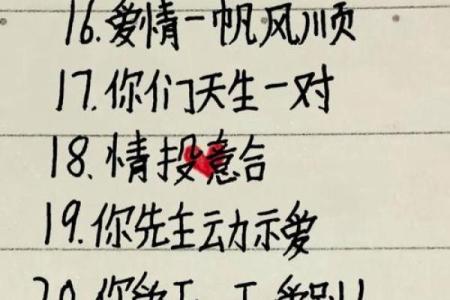 16.爱情一帆风顺
17.你们天生一对
18.情投意合
19.你先主动示爱
20.你